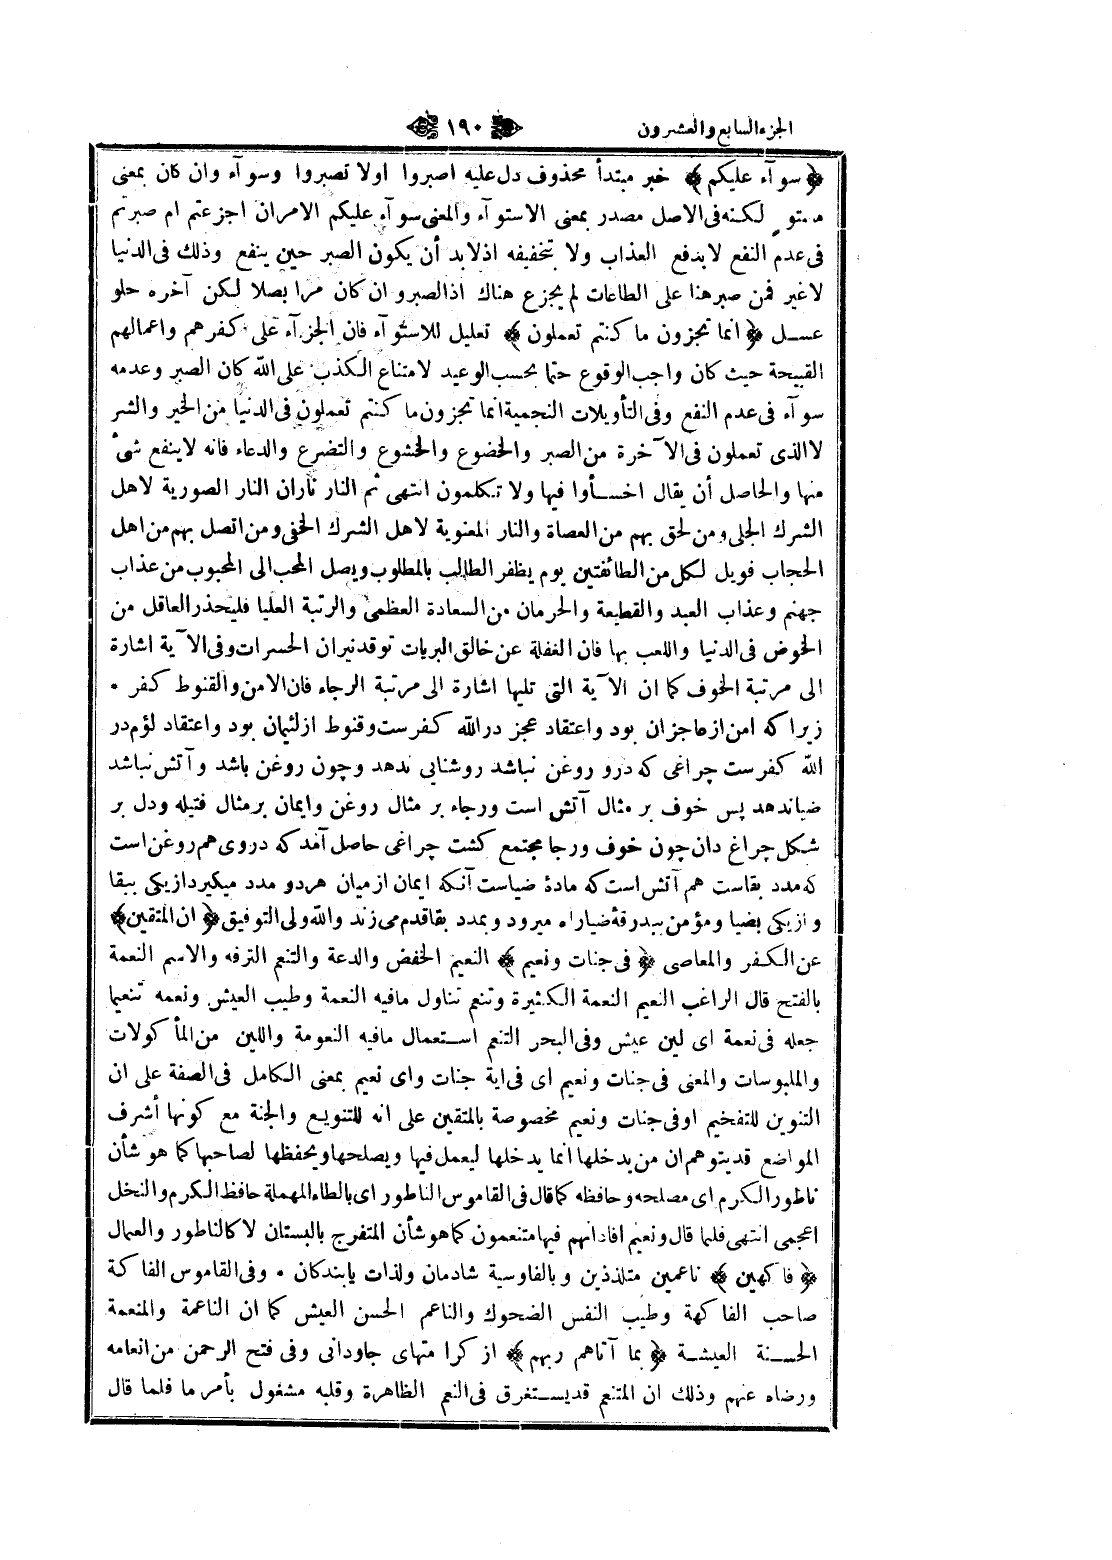 الجزء السابع والعشرون
١٩٠
﴿ سوآء عليكم ﴾ خبر مبتدأ محذوف دل عليه اصبروا اولا تصبروا وسوآء وان كان بمعنى
مستو لكنه فى الاصل مصدر بمعنى الاستوآء والمعنى سوآء عليكم الامران اجزعتم ام صبرتم
فى عدم النفع لا بدفع العذاب ولا بتخفيفه اذلابد أن يكون الصبر حين ينفع وذلك فى الدنيا
لا غير فمن صبر هنا على الطاعات لم يجزع هناك اذ الصبر وان كان مرا بصلا لكن آخره حلو
عسل ﴿ انما تجزون ما كنتم تعملون ﴾ تعليل للاستوآء فان الجزآء على كفرهم واعمالهم
القبيحة حيث كان واجب الوقوع حتما بحسب الوعيد لامتناع الكذب على الله كان الصبر وعدمه
سوآء فى عدم النفع وفى التأويلات النجمية انما تجزون ما كنتم تعملون فى الدنيا من الخير والشر
لا الذى تعملون فى الآخرة من الصبر والخضوع والخشوع والتضرع والدعاء فانه لا ينفع شئ
منها والحاصل أن يقال اخسأوا فيها ولا تتكلمون انتهى ثم النار ناران النار الصورية لاهل
الشرك الجلى ومن لحق بهم من العصاة والنار المعنوية لاهل الشرك الخفى ومن اتصل بهم من اهل
الحجاب فويل لكل من الطائفتين يوم يظفر الطالب بالمطلوب ويصل المحب الى المحبوب من عذاب
جهنم وعذاب العبد والقطيعة والحرمان من السعادة العظمى والرتبة العليا فليحذر العاقل من
الخوض فى الدنيا واللعب بها فان الغفلة عن خالق البريات توقد نيران الحسرات وفى الآية اشارة
الى مرتبة الخوف كما ان الآية التى تليها اشارة الى مرتبة الرجاء فان الامن والقنوط كفر ٠
زيرا كه امن ازعاجزان بود واعتقاد عجز در الله كفرست وقنوط ازلئيمان بود واعتقاد لؤم در
الله كفرست چراغى كه درو روغن نباشد روشنايى ندهد وچون روغن باشد وآتش نباشد
ضياندهد پس خوف بر مثال آتش است ورجاء بر مثال روغن وايمان بر مثال فتيله ودل بر
شكل چراغ دان چون خوف ورجا مجتمع كشت چراغى حاصل آمد كه دروى هم روغن است
كه مدد بقاست هم آتش است كه مادۀ ضياست آنكه ايمان ازميان هردو مدد ميكيرد ازيكى ببقا
وازيكى بضيا ومؤمن ببدرقۀ ضياراه ميرود وبمدد بقا قدم مى زند والله ولى التوفيق ﴿ ان المتقين ﴾
عن الكفر والمعاصى ﴿ فى جنات ونعيم ﴾ النعيم الخفض والدعة والتنعم الترفه والاسم النعمة
بالفتح قال الراغب النعيم النعمة الكثيرة وتنعم تناول مافيه النعمة وطيب العيش ونعمه تنعيما
جعله فى نعمة اى لين عيش وفى البحر التنعم استعمال مافيه النعومة واللين من المأكولات
والملبوسات والمعنى فى جنات ونعيم اى فى اية جنات واى نعيم بمعنى الكامل فى الصفة على ان
التنوين للتفخيم اوفى جنات ونعيم مخصوصة بالمتقين على انه للتنويع والجنة مع كونها أشرف
المواضع قديتوهم ان من يدخلها انما يدخلها ليعمل فيها ويصلحها ويحفظها لصاحبها كما هو شأن
ناطور الكرم اى مصلحه وحافظه كما قال فى القاموس الناطور اى بالطاء المهملة حافظ الكرم والنخل
اعجمى انتهى فلما قال ونعيم افاد انهم فيها متنعمون كما هو شأن المتفرج بالبستان لا كالناطور والعمال
﴿ فاكهين ﴾ ناعمين متلذذين وبالفاوسية شادمان ولذات يابندكان ٠ وفى القاموس الفاكة
صاحب الفاكهة وطيب النفس الضحوك والناعم الحسن العيش كما ان الناعمة والمنعمة
الحسنة العيشة ﴿ بما آتاهم ربهم ﴾ از كرامتهاى جاودانى وفى فتح الرحمن من انعامه
ورضاه عنهم وذلك ان المتنعم قديستغرق فى النعم الظاهرة وقلبه مشغول بأمر ما فلما قال